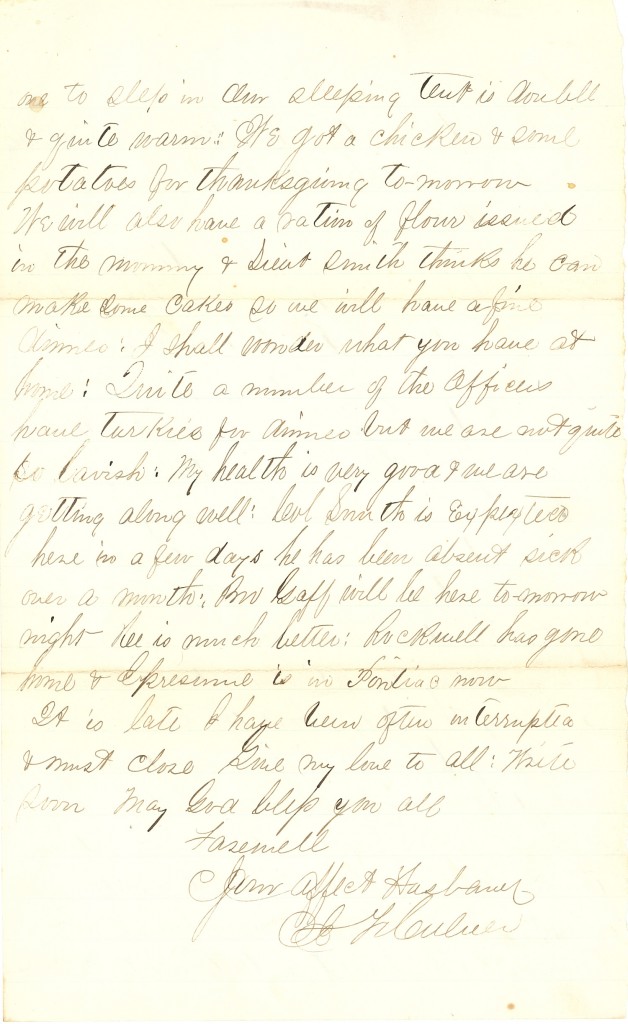 one to sleep in Our sleeping tent is doubll
& quite warm: We got a chicken & some
potatoes for thanksgiving to-morrow
We will also have a ration of flour issued
in the morning & Lieut Smith thinks he can
make some cakes so we will have a fine
dinner: I shall wonder what you have at
home: Quite a number of the Officers
have turkies for dinner but we are not quite
so lavish: My health is very good & we are
getting along well: Col Smith is Expected
here in a few days he has been absent sick
over a month: Goff will be here to-morrow
night hee is much better: Rockwell has gone
home & I presume is in Pontiac now
It is late I have been often interrupted
& must close Give my love to all: Write
soon May God bless you all
Farewell
Your affect Husband